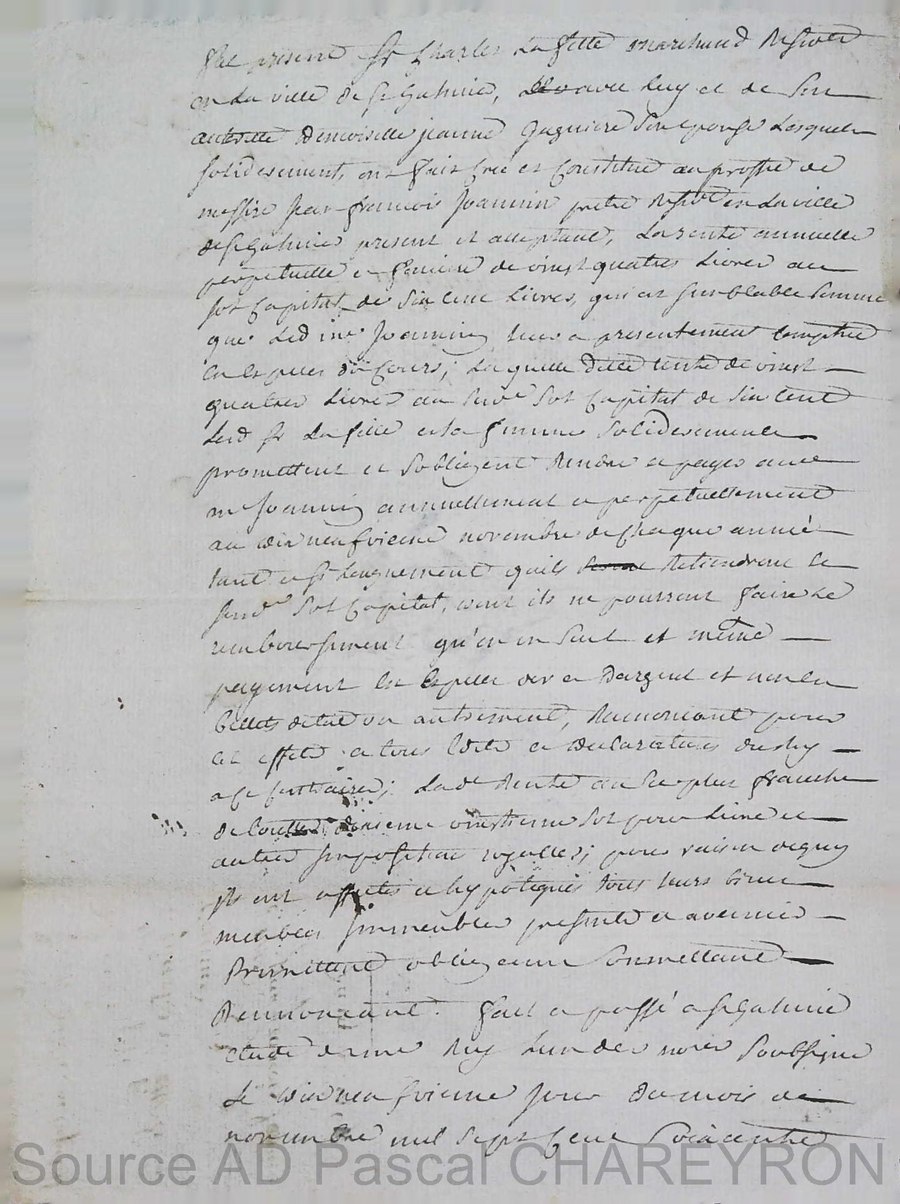 fut présent Sr Charles Lafitte marchand Résident
en La ville de St Galmier, avec luy et de Son
authorité demoiselle jeanne Gagniere Son epouse Lesquels
solidairement, ont fait Créé et Constitué au proffit de
messire jean françois Joannin pretre Résidt en La ville
de St Galmier present et acceptant, La rente annuelle
perpetuelle et fonciere de vingt quatre Livres au
sort Capital de Six Cent Livres, qui est semblable Somme
que Led. me Joannin leur a presentement Comptée
en Especes du Cours; La quelle ditte rente de vingt
quatre Livres au Sort Capital de Six Cent
Led Sr Lafitte et sa femme Solidairement
promettent et Sobligent Rendre et payer aud
mr Joannin annuellement et perpetuellement
au dix neufvieme novembre de Chaque année
tant et si Longuement quils Retiendront le
susd Sort Capital, dont ils ne pourront faire Le
remboursement qu'en un Seul et même
payement En Especes d'or et Dargent et non en
billets detat ou autrement, Renoncant pour
cet effet a tous Edits et declarations du Roy
a Ce Contraires; Lad Rente au Surplus franche
de vingtieme Sol pour Livre et
autres impositions royalles; pour raison dequoy
ils ont affectés et hypotequés tous leurs biens
meubles immeubles presents et avenir
Promettant obligeant Soumettant
Rennoncant. fait et passé a St Galmier
etude de me Rey Lun des nores Soubsigné
Le dix neufvieme jour du mois de
novembre mil Sept Cent Soixante
Source AD Pascal CHAREYRON